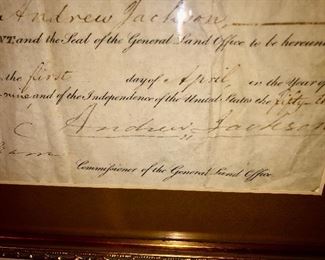 Andrew Jackson,
NT and the Seal of the General Land Office to be hereun
the first day of April in the Year of
nine and of the Independence of the United States the fifty-th
Andrew Jackson
Commissioner of the General Land Office.